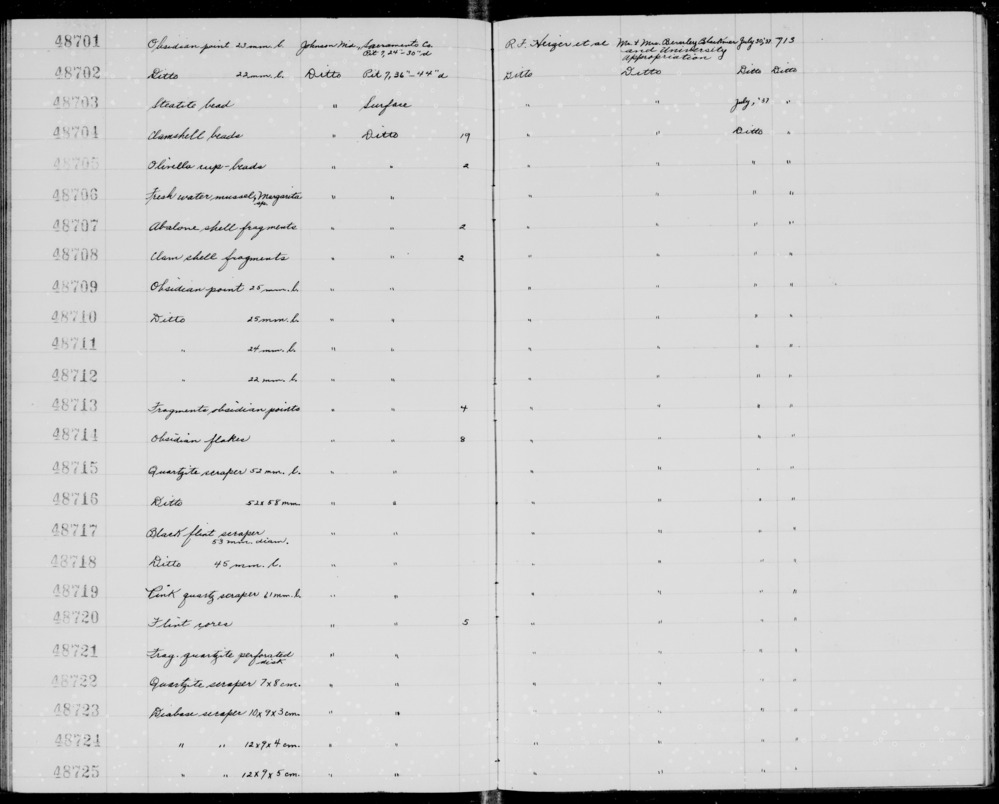 48701 Obsidian point 23 mm. l. Johnson Md., Sacramento Co. R.F. Heizer et al Mr. & Mrs. July 713
Pit 7, 24"-30" d and University
Appropriation
48702 Ditto 22 mm. l. Ditto Pit 7, 36"-44" d Ditto Ditto Ditto Ditto
48703 Steatite bead " Surface " " July, '37 "
48704 Clamshell beads " Ditto 19 " " Ditto "
48705 Olivella cup-beads " " 2 " " " "
48706 Fresh water mussel, Margarita " " " " " "
sp.
48707 Abalone shell fragments " " 2 " " " "
48708 Clam shell fragments " " 2 " " " "
48709 Obsidian point 25 mm. l. " " " " " "
48710 Ditto 25 mm. l. " " " " " "
48711 " 24 mm. l. " " " " " "
48712 " 22 mm. l. " " " " " "
48713 Fragments, obsidian points " " 4 " " " "
48714 Obsidian flakes " " 8 " " " "
48715 Quartzite scraper 52 mm. l. " " " " " "
48716 Ditto 52 x 58 mm. " " " " " "
48717 Black flint scraper " " " " " "
53 mm. diam.
48718 Ditto 45 mm. l. " " " " " "
48719 Pink quartz scraper 61 mm. l. " " " " " "
48720 Flint cores " " 5 " " " "
48721 Frag. quartzite perforated " " " " " "
disk
48722 Quartzite scraper 7 x 8 cm. " " " " " "
48723 Diabase scraper 10 x 9 x 3 cm. " " " " " "
48724 " " 12 x 9 x 4 cm. " " " " " "
48725 " " 12 x 9 x 5 cm. " " " " " "